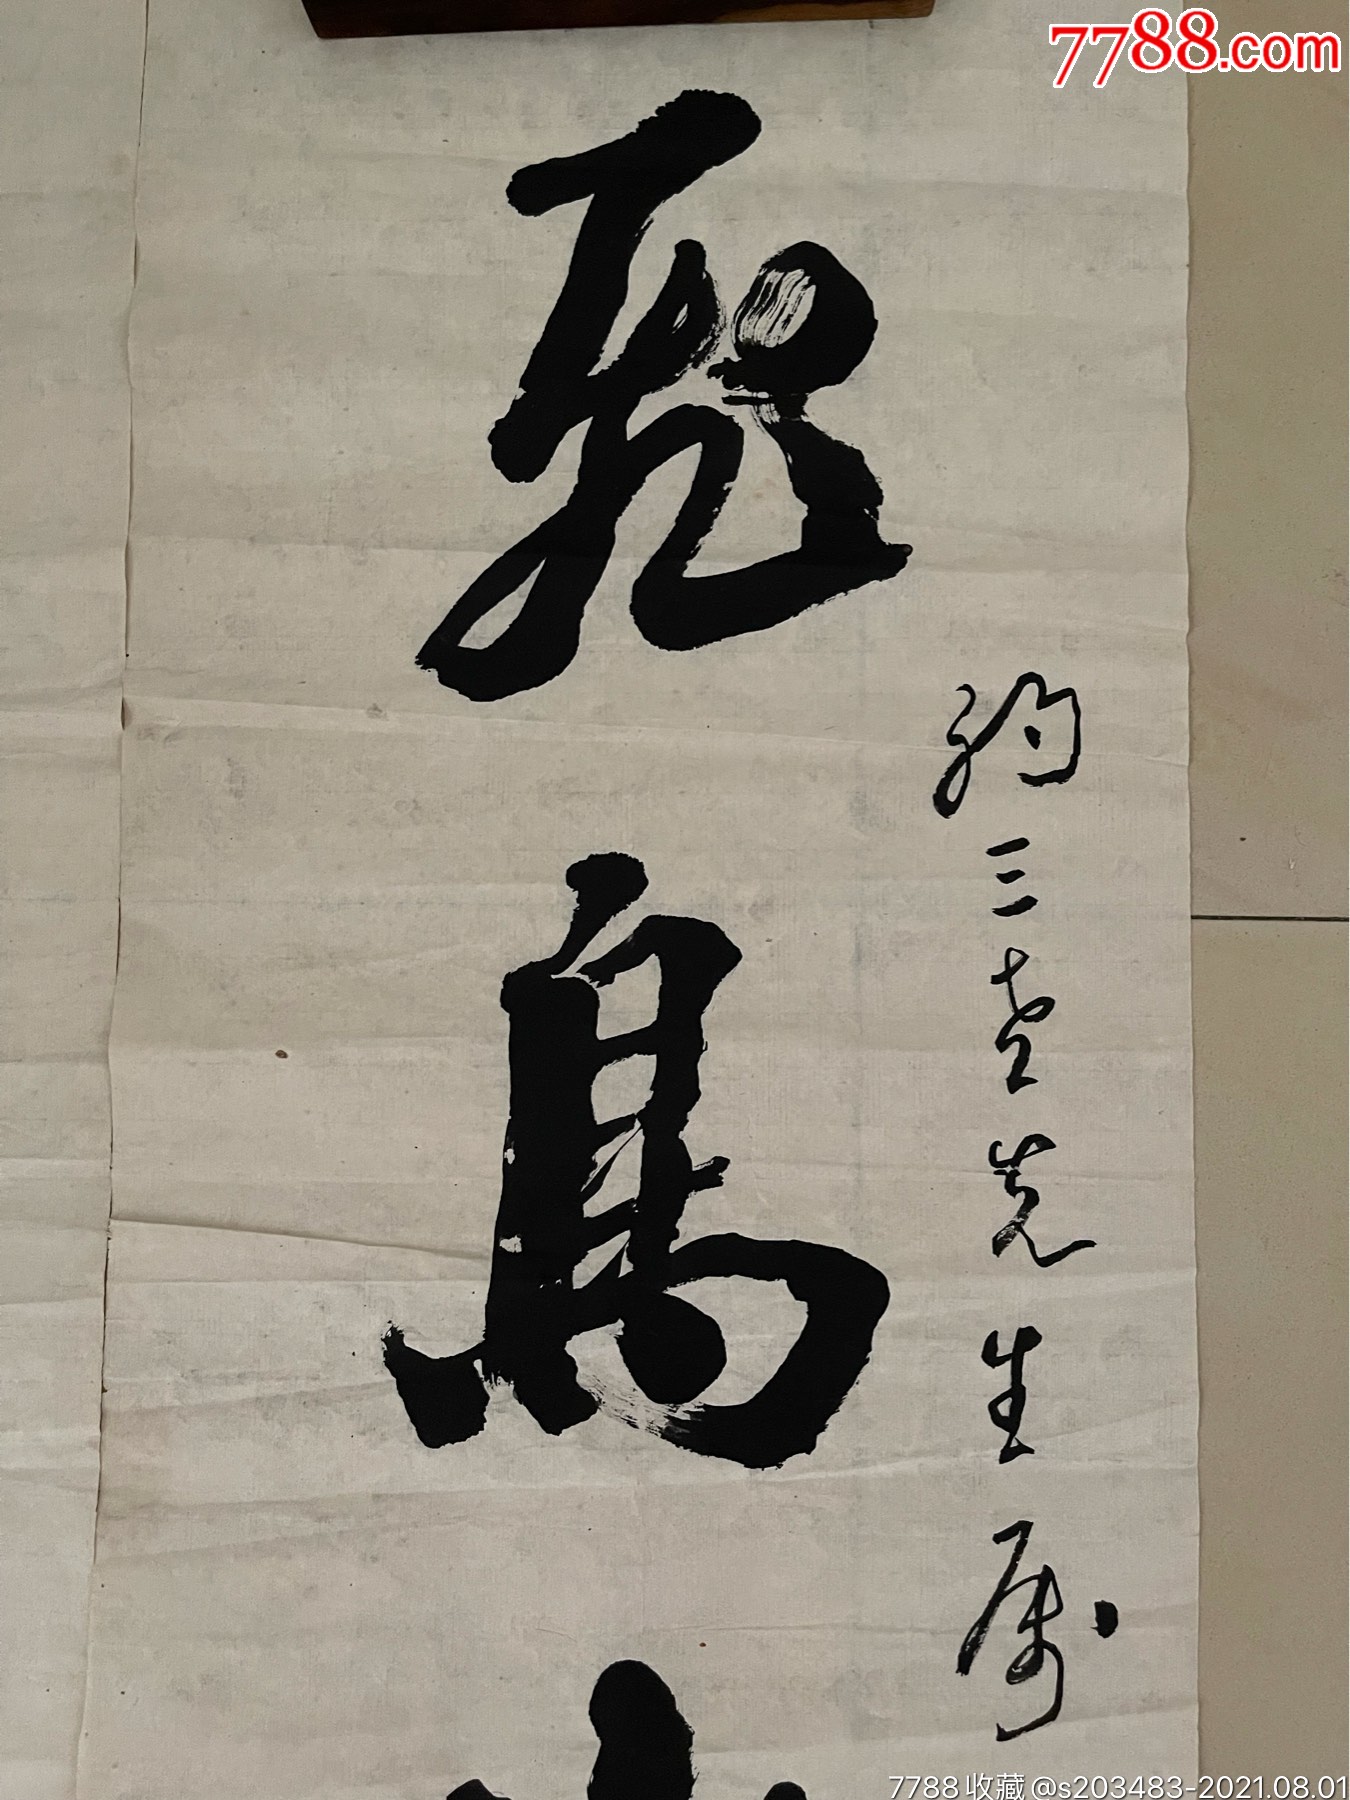 鳥
約三老先生属
7788.com
7788收藏@s203483-2021.08.01